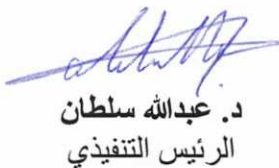 د. عبدالله سلطان
الرئيس التنفيذي